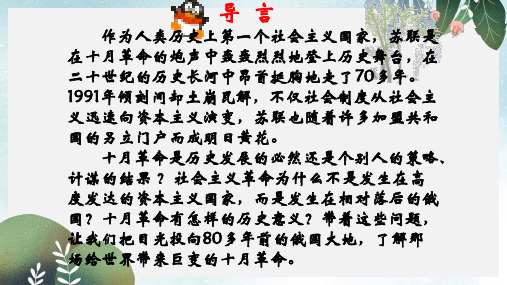 导 言
作为人类历史上第一个社会主义国家，苏联是
在十月革命的炮声中轰轰烈烈地登上历史舞台，在
二十世纪的历史长河中昂首挺胸地走了70多年。
1991年倾刻间却土崩瓦解，不仅社会制度从社会主
义迅速向资本主义演变，苏联也随着许多加盟共和
国的另立门户而成明日黄花。
十月革命是历史发展的必然还是个别人的策略、
计谋的结果？社会主义革命为什么不是发生在高
度发达的资本主义国家，而是发生在相对落后的俄
国？十月革命有怎样的历史意义？带着这些问题，
让我们把目光投向80多年前的俄国大地，了解那
场给世界带来巨变的十月革命。